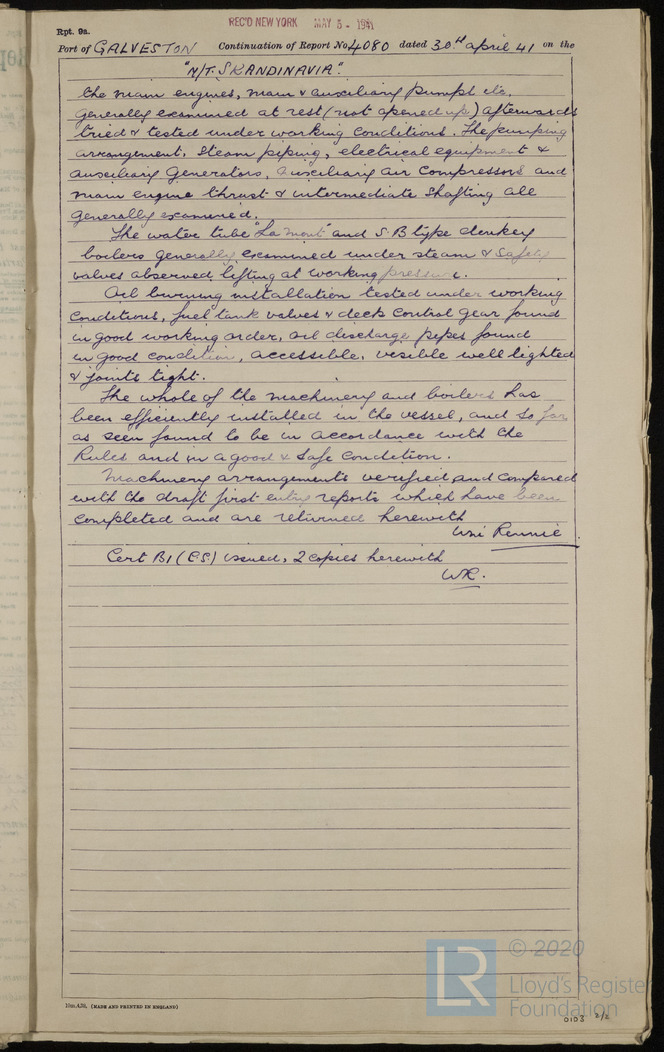 REC'D NEW YORK MAY 3 - 1941
Rpt. 9a.
Port of GALVESTON Continuation of Report No 4080 dated 30th April 41 on the
"M/T. SKANDINAVIA".
the main engines, main & auxiliary pumps etc.
generally examined at rest (not opened up) afterwards
tried & tested under working conditions. The pumping
arrangement, steam piping, electrical equipment &
auxiliary generators, auxiliary air compressors and
main engine thrust & intermediate shafting all
generally examined.
The water tube "La Mont" and S.B type donkey
boilers generally examined under steam & safety
valves observed lifting at working pressure.
Oil burning installation tested under working
conditions, fuel tank valves & deck control gear found
in good working order, oil discharge pipes found
in good condition, accessible, visible well lighted
& joints tight.
The whole of the machinery and boilers has
been efficiently installed in the vessel, and so far
as seen found to be in accordance with the
Rules and in a good & safe condition.
Machinery arrangements verified and compared
with the draft first entry reports which have been
completed and are returned herewith
Wm Rennie
Cert B1 (C.S.) issued, 2 copies herewith
WR.
10m.4.39. (MADE AND PRINTED IN ENGLAND)
LR
© 2020
Lloyd's Register
Foundation
0103 2/2